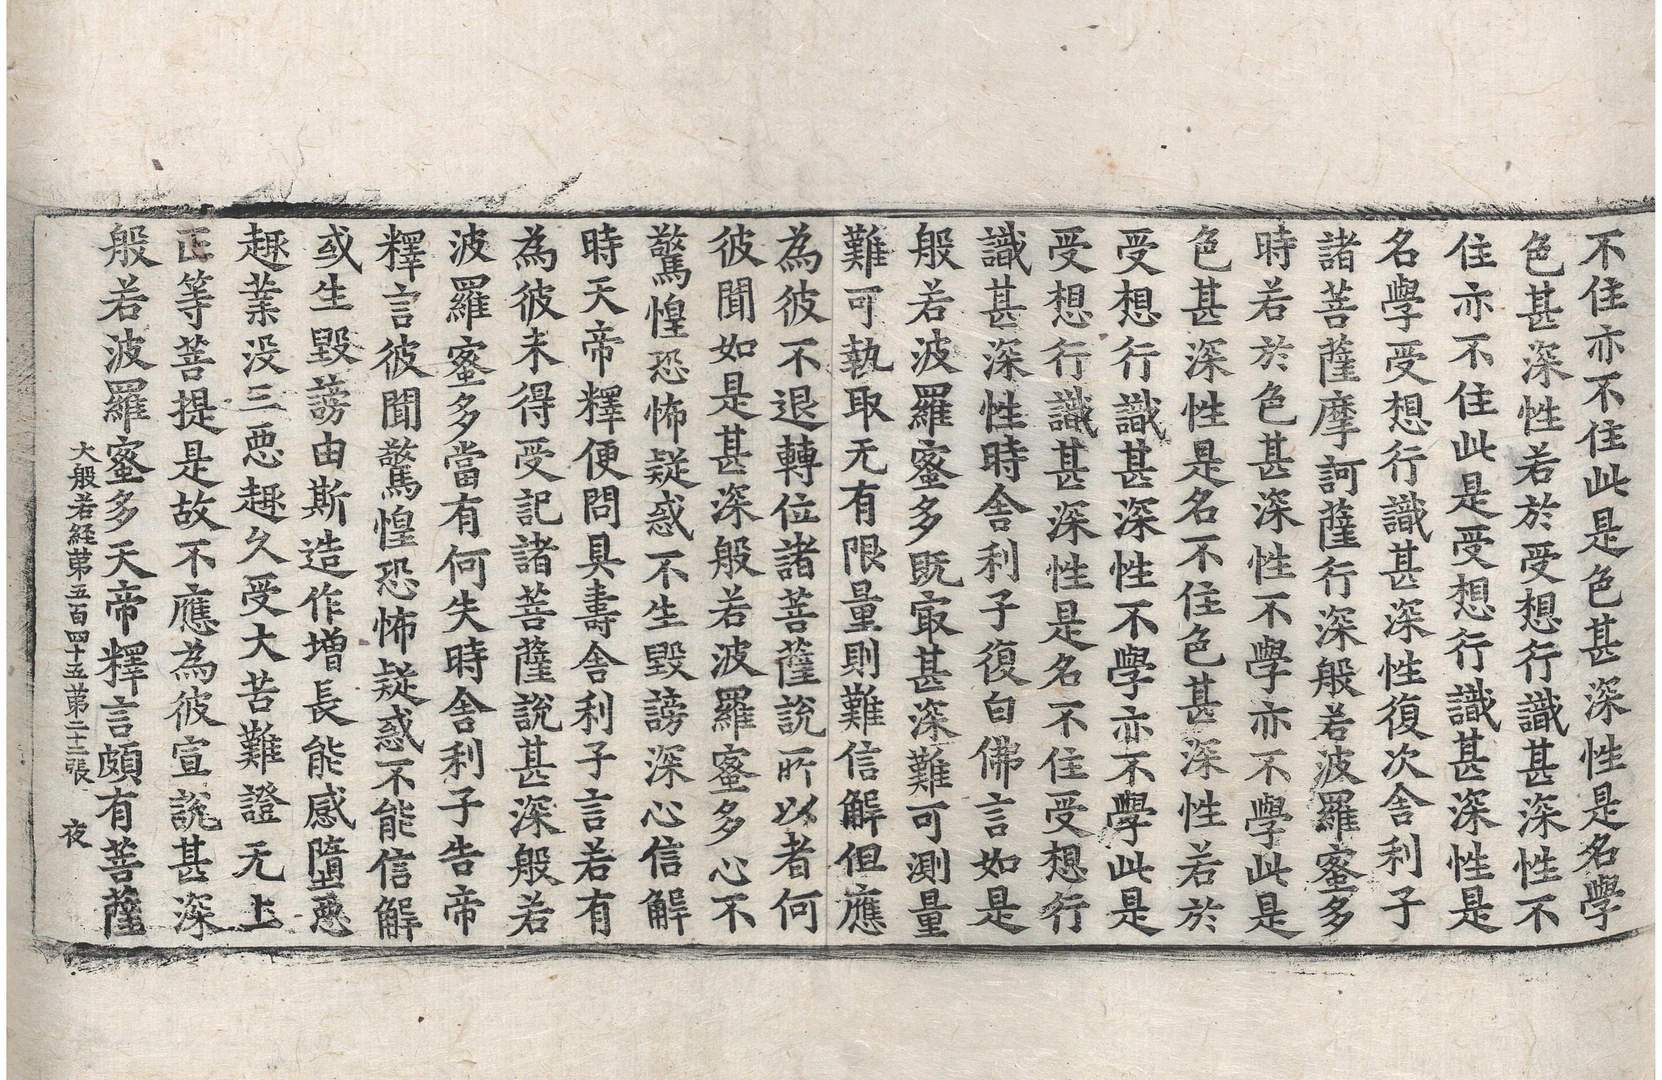 不住亦不住此是色甚深性是名學
色甚深性若於受想行識甚深性不
住亦不住此是受想行識甚深性是
名學受想行識甚深性復次舍利子
諸菩薩摩訶薩行深般若波羅蜜多
時若於色甚深性不學亦不學此是
色甚深性是名不住色甚深性若於
受想行識甚深性不學亦不學此是
受想行識甚深性是名不住受想行
識甚深性時舍利子復白佛言如是
般若波羅蜜多既㝡甚深難可測量
難可執取无有限量則難信解但應
為彼不退轉位諸菩薩說所以者何
彼聞如是甚深般若波羅蜜多心不
驚惶恐怖疑惑不生毀謗深心信解
時天帝釋便問具壽舍利子言若有
為彼未得受記諸菩薩說甚深般若
波羅蜜多當有何失時舍利子告帝
釋言彼聞驚惶恐怖疑惑不能信解
或生毀謗由斯造作增長能感墮惡
趣業没三惡趣久受大苦難證无上
正等菩提是故不應為彼宣說甚深
大般若経苐五百四十五苐二十二張 夜
般若波羅蜜多天帝釋言頗有菩薩